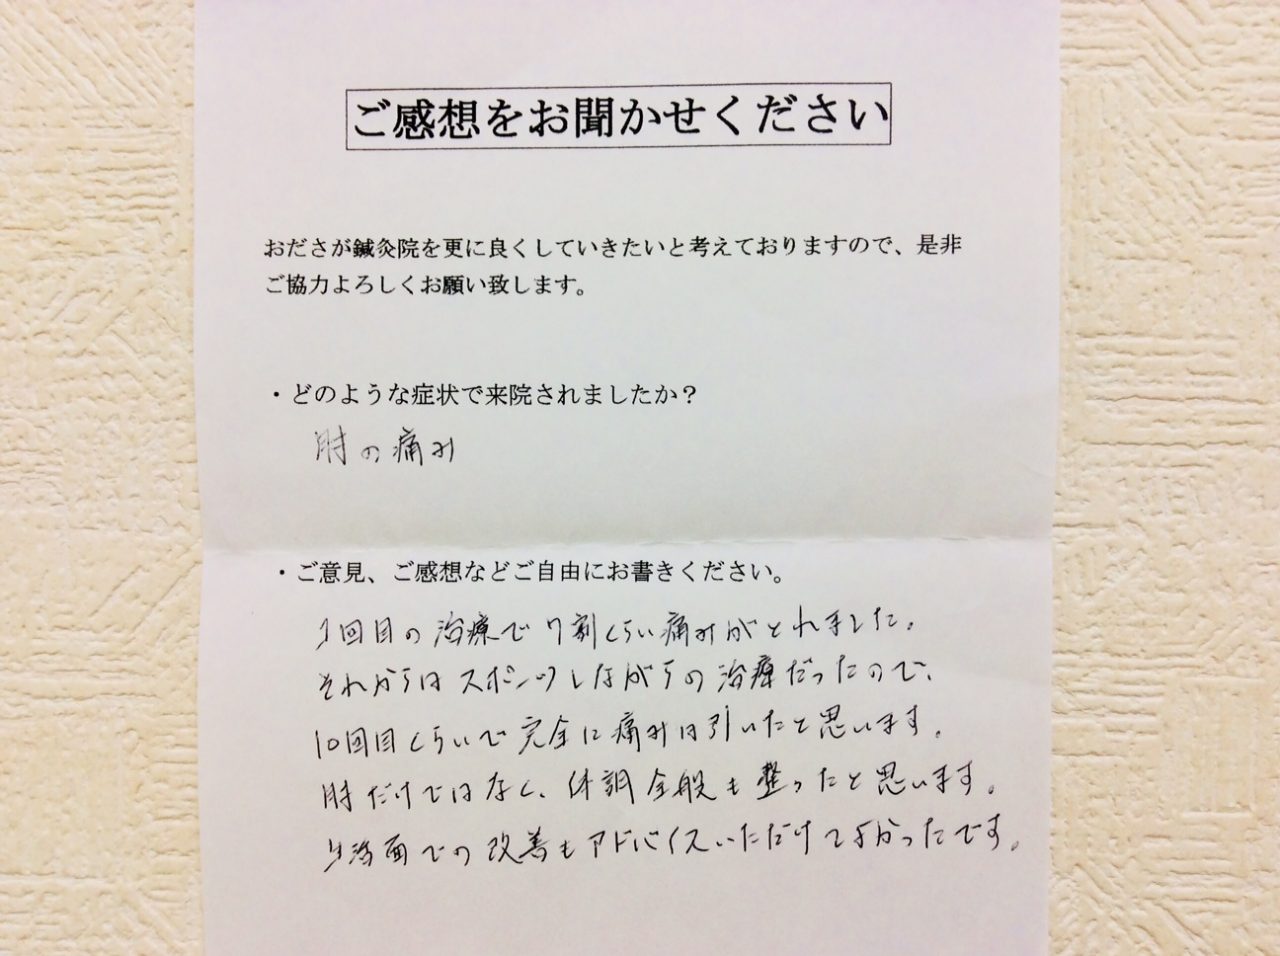 ご感想をお聞かせください
おださが鍼灸院を更に良くしていきたいと考えておりますので、是非
ご協力よろしくお願い致します。
・どのような症状で来院されましたか？
肘の痛み
・ご意見、ご感想などご自由にお書きください。
1回目の治療で7割くらい痛みがとれました。
それからはスポーツしながらの治療だったので、
10回目くらいで完全に痛みは引いたと思います。
肘だけではなく、体調全般も整ったと思います。
生活面での改善もアドバイスいただけてよかったです。